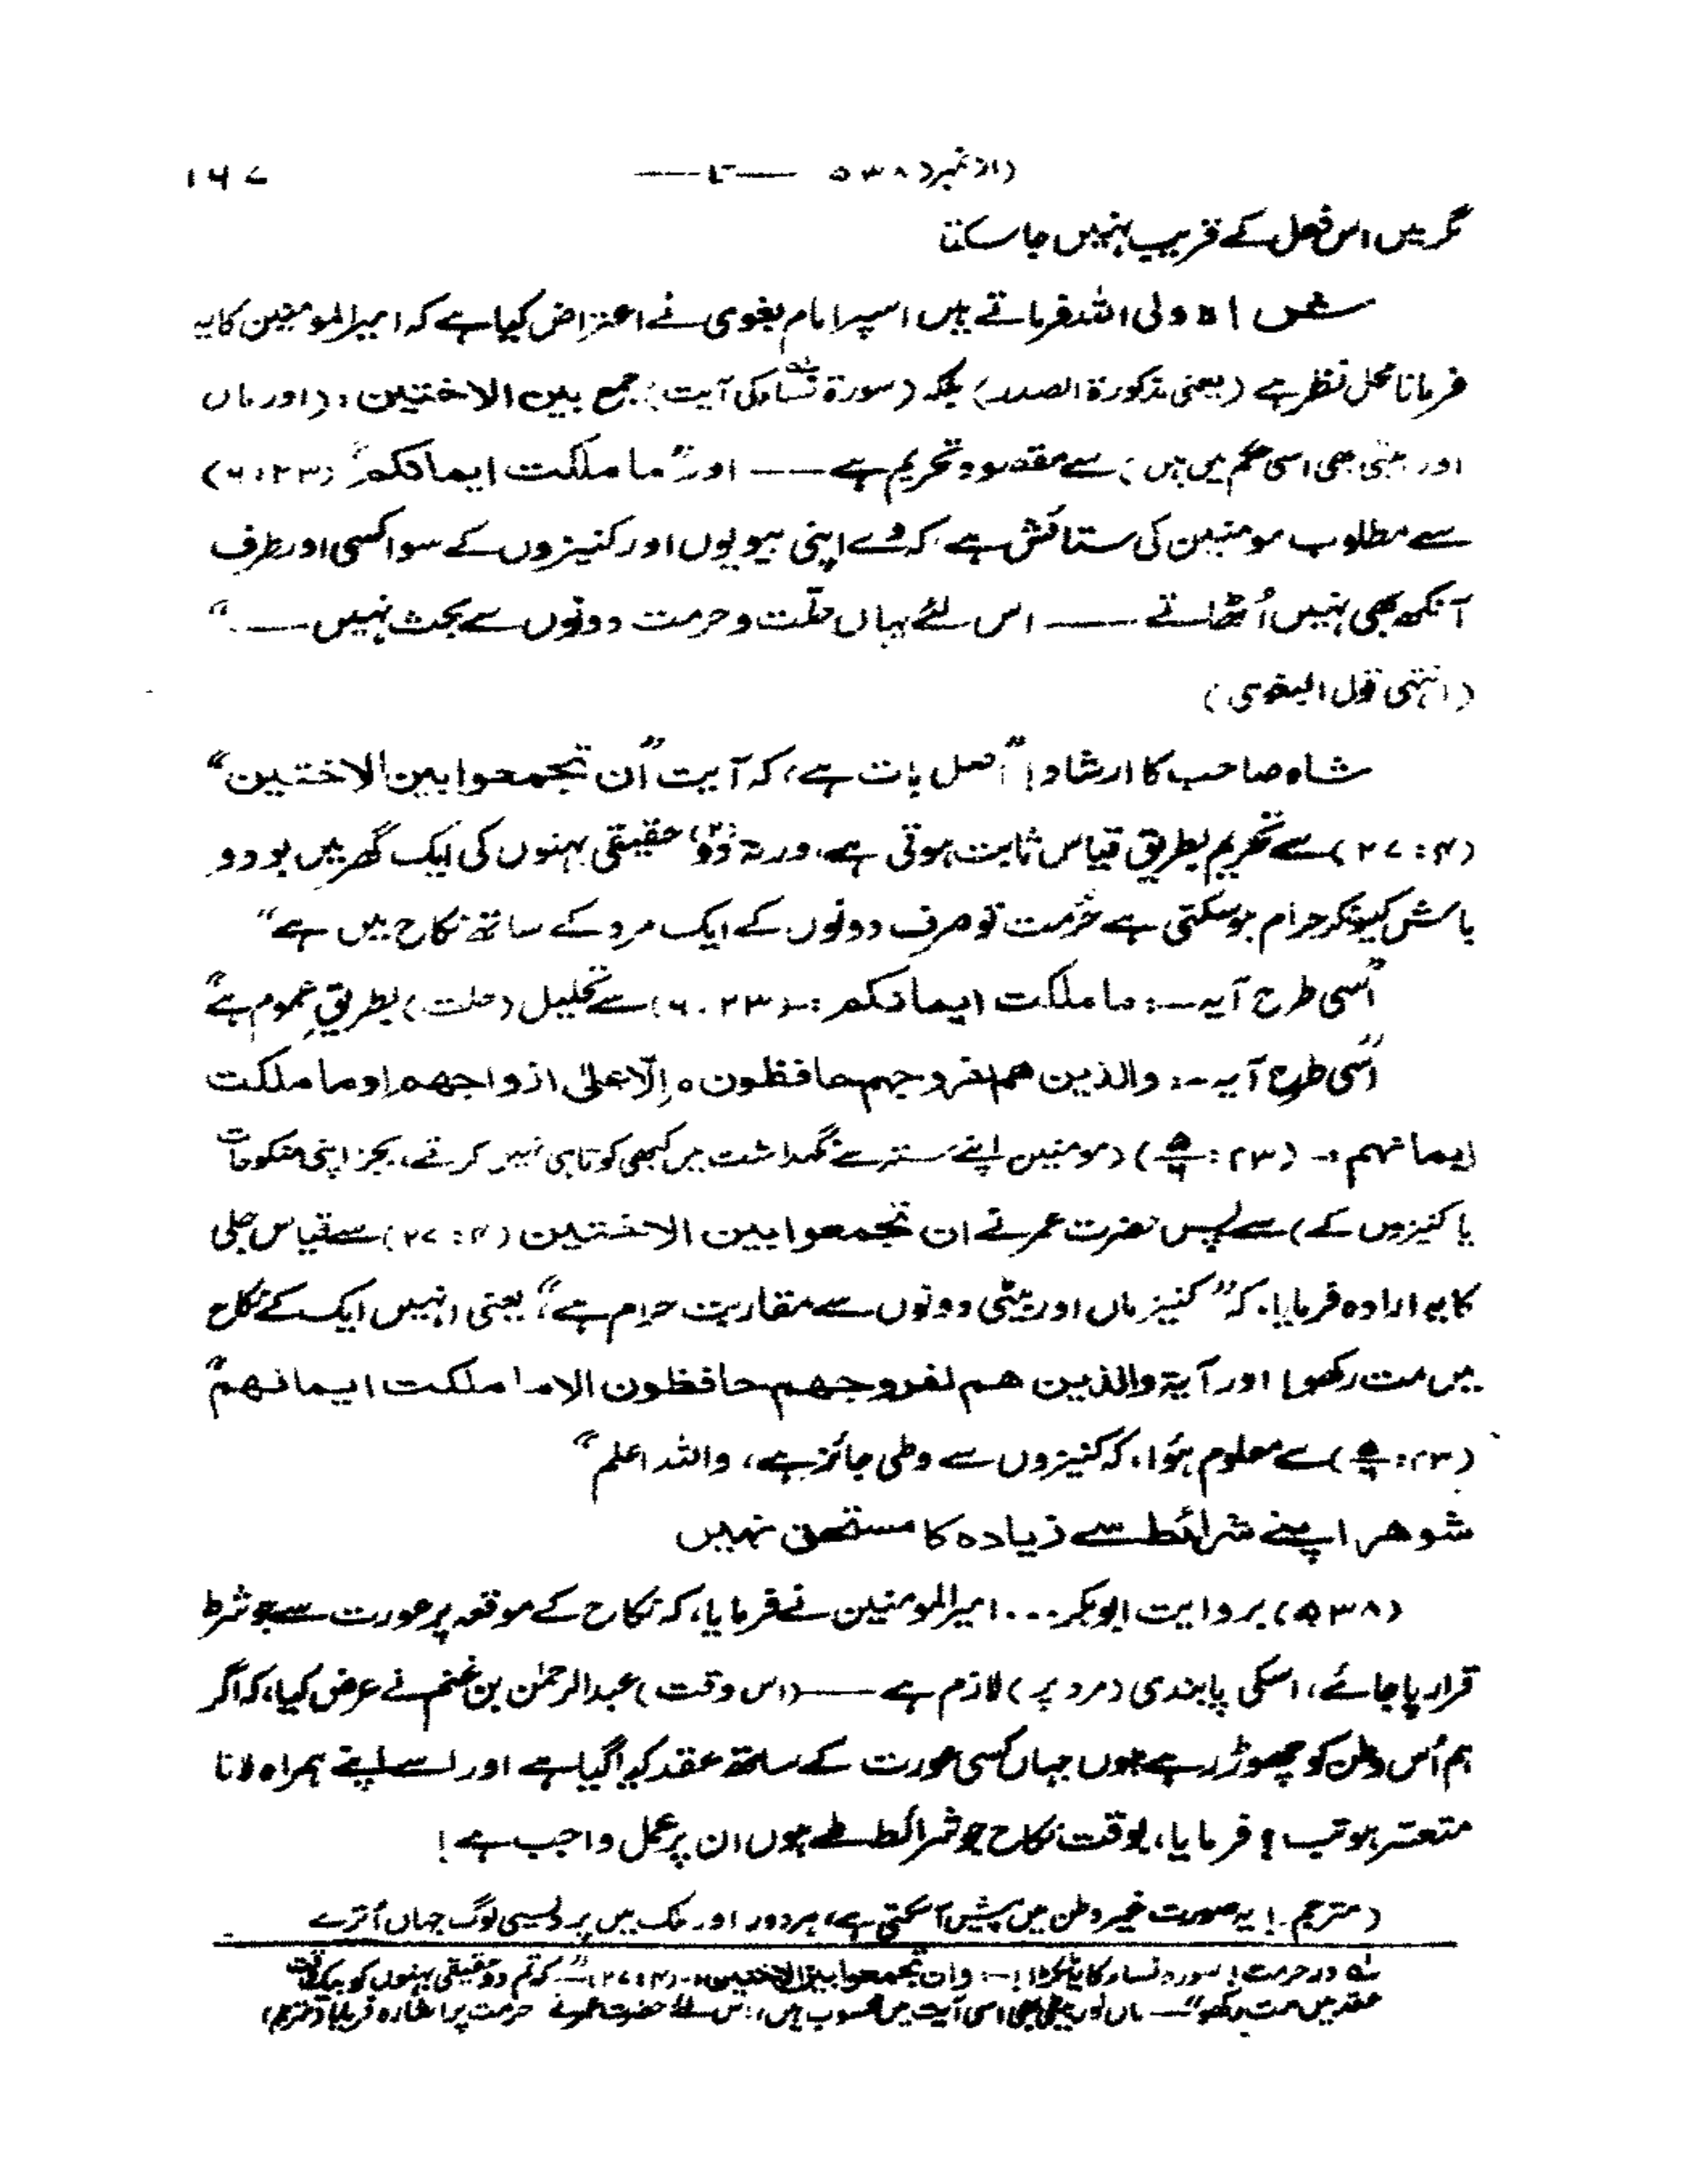 (از نمبر) ۵۳۸ —— تا —— ۱۶۷
مگر میں اس فعل کے قریب نہیں جا سکتا
شاہ ولی اللہ فرماتے ہیں اسپر امام بغوی نے اعتراض کیا ہے کہ امیرالمومنین کا یہ
فرمانا محل نظر ہے (یعنی مذکورۃ الصدر) بلکہ (سورۃ نساء کی آیت: جمع بین الاختین: (اور ماں
اور بیٹی بھی اسی حکم میں ہیں) سے مقصود تحریم ہے —— اور "ما ملکت ایمانکم" (۶:۲۳)
سے مطلوب مومنین کی ستائش ہے، کہ وے اپنی بیویوں اور کنیزوں کے سوا کسی اور طرف
آنکھ بھی نہیں اُٹھاتے —— اس لئے یہاں حلّت و حرمت دونوں سے بحث نہیں ——."
(انتہی قول البغوی)
شاہ صاحب کا ارشاد! "اصل بات ہے، کہ آیت "ان تجمعوا بین الاختین"
(۲۷:۴) سے تحریم بطریق قیاس ثابت ہوتی ہے، ورنہ دو (۲) حقیقی بہنوں کی ایک گھر میں بود و
باش کیونکر حرام ہو سکتی ہے حُرمت تو صرف دونوں کے ایک مرد کے ساتھ نکاح میں ہے"
"اسی طرح آیہ —: ما ملکت ایمانکم :— (۶.۲۳) سے تحلیل (حلت) بطریقِ عموم ہے"
"اسی طرح آیہ —: والذین ھم لفروجہم حافظون ہ اِلّا علیٰ ازواجھم او ما ملکت
ایمانہم :— (۲۳: ۵/۶) (مومنین اپنے ستر سے نگہداشت میں کبھی کوتاہی نہیں کرتے، بجز اپنی منکوحات
یا کنیزوں کے) سے پس حضرت عمر نے ان تجمعوا بین الاختین (۲۷:۴) سے قیاس جلی
کا یہ ارادہ فرمایا، کہ "کنیز ماں اور بیٹی دونوں سے مقاربت حرام ہے"، یعنی انہیں ایک کے نکاح
میں مت رکھو! اور آیۃ والذین ھم لفروجھم حافظون الا ما ملکت ایمانھم"
(۲۳: ۵/۶) سے معلوم ہُوا، کہ کنیزوں سے وطی جائز ہے، واللہ اعلم"
شوھر اپنے شرائط سے زیادہ کا مستحق نہیں
(۵۳۸) بروایت ابوبکر... امیرالمومنین نے فرمایا، کہ نکاح کے موقعہ پر عورت سے جو شرط
قرار پا جائے، اسکی پابندی (مرد پر) لازم ہے —— (اس وقت) عبدالرحمٰن بن غنم نے عرض کیا، کہ اگر
ہم اُس وطن کو چھوڑ رہے ہوں جہاں کسی عورت کے ساتھ عقد کیا گیا ہے اور اسے اپنے ہمراہ لانا
متعسّر ہو تب؟ فرمایا، بوقت نکاح جو شرائط طے ہوں ان پر عمل واجب ہے!
(مترجم! یہ صورت غیر وطن میں پیش آ سکتی ہے، ہر دور اور ملک میں پردیسی لوگ جہاں اُترے
لہ در حرمت! سورہ نساء کا یہ ٹکڑا! —: وان تجمعوا بین الاختین :— (۲۷:۴) — "کہ تم دو حقیقی بہنوں کو بیک وقت
عقد میں مت رکھو" — ماں اور بیٹی بھی اسی آیت میں محسوب ہیں، اس لئے حضرت عمر نے حرمت پر اشارہ فرمایا (مترجم)